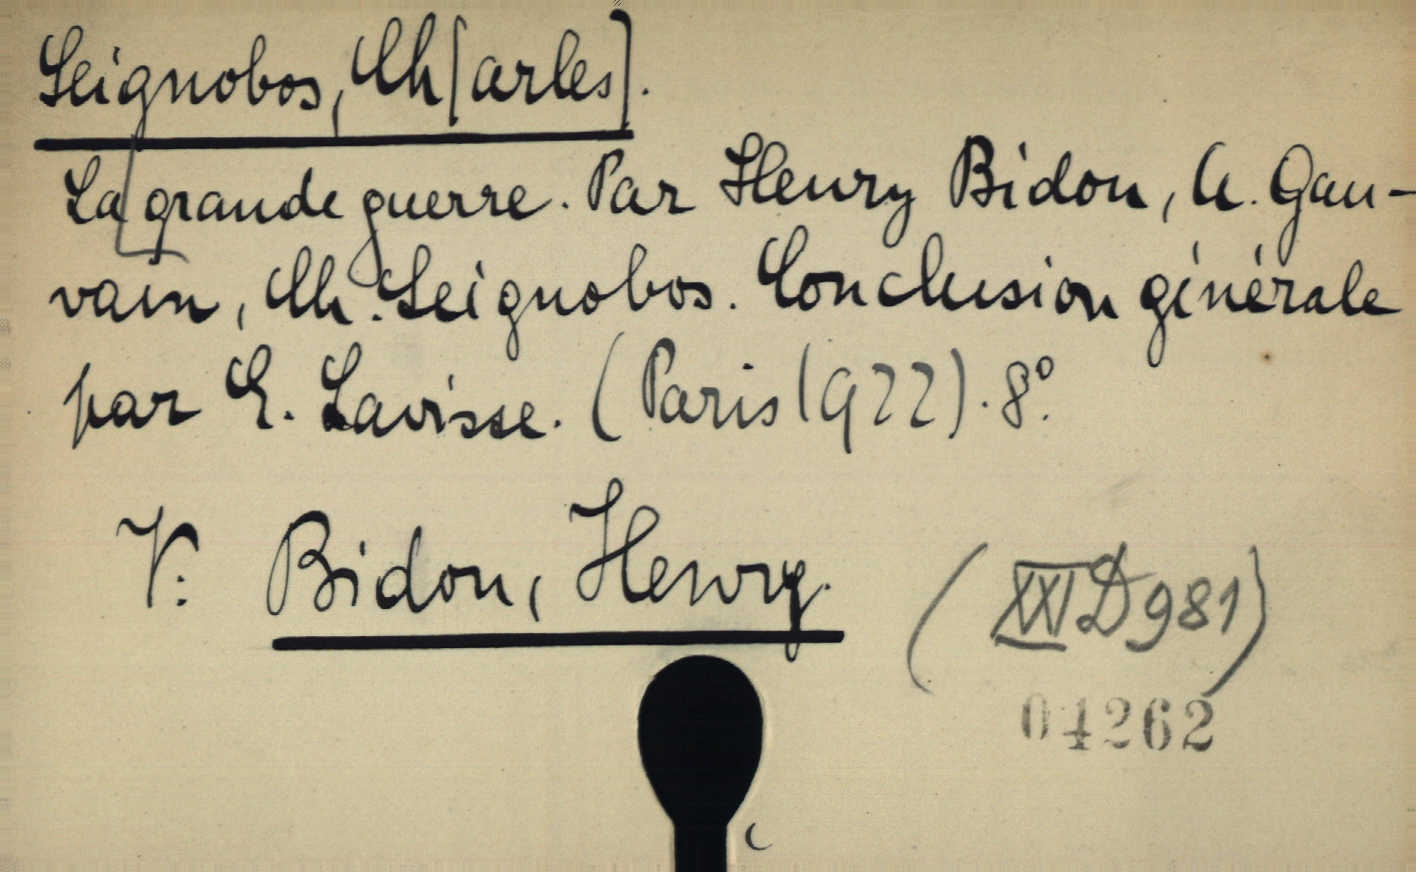 Seignobos, Ch[arles].
La grande guerre. Par Henry Bidou, A. Gau-
vain, Ch. Seignobos. Conclusion générale
par E. Lavisse. (Paris 1922). 8°.
V. Bidou, Henry.
(XXI D 981)
04262